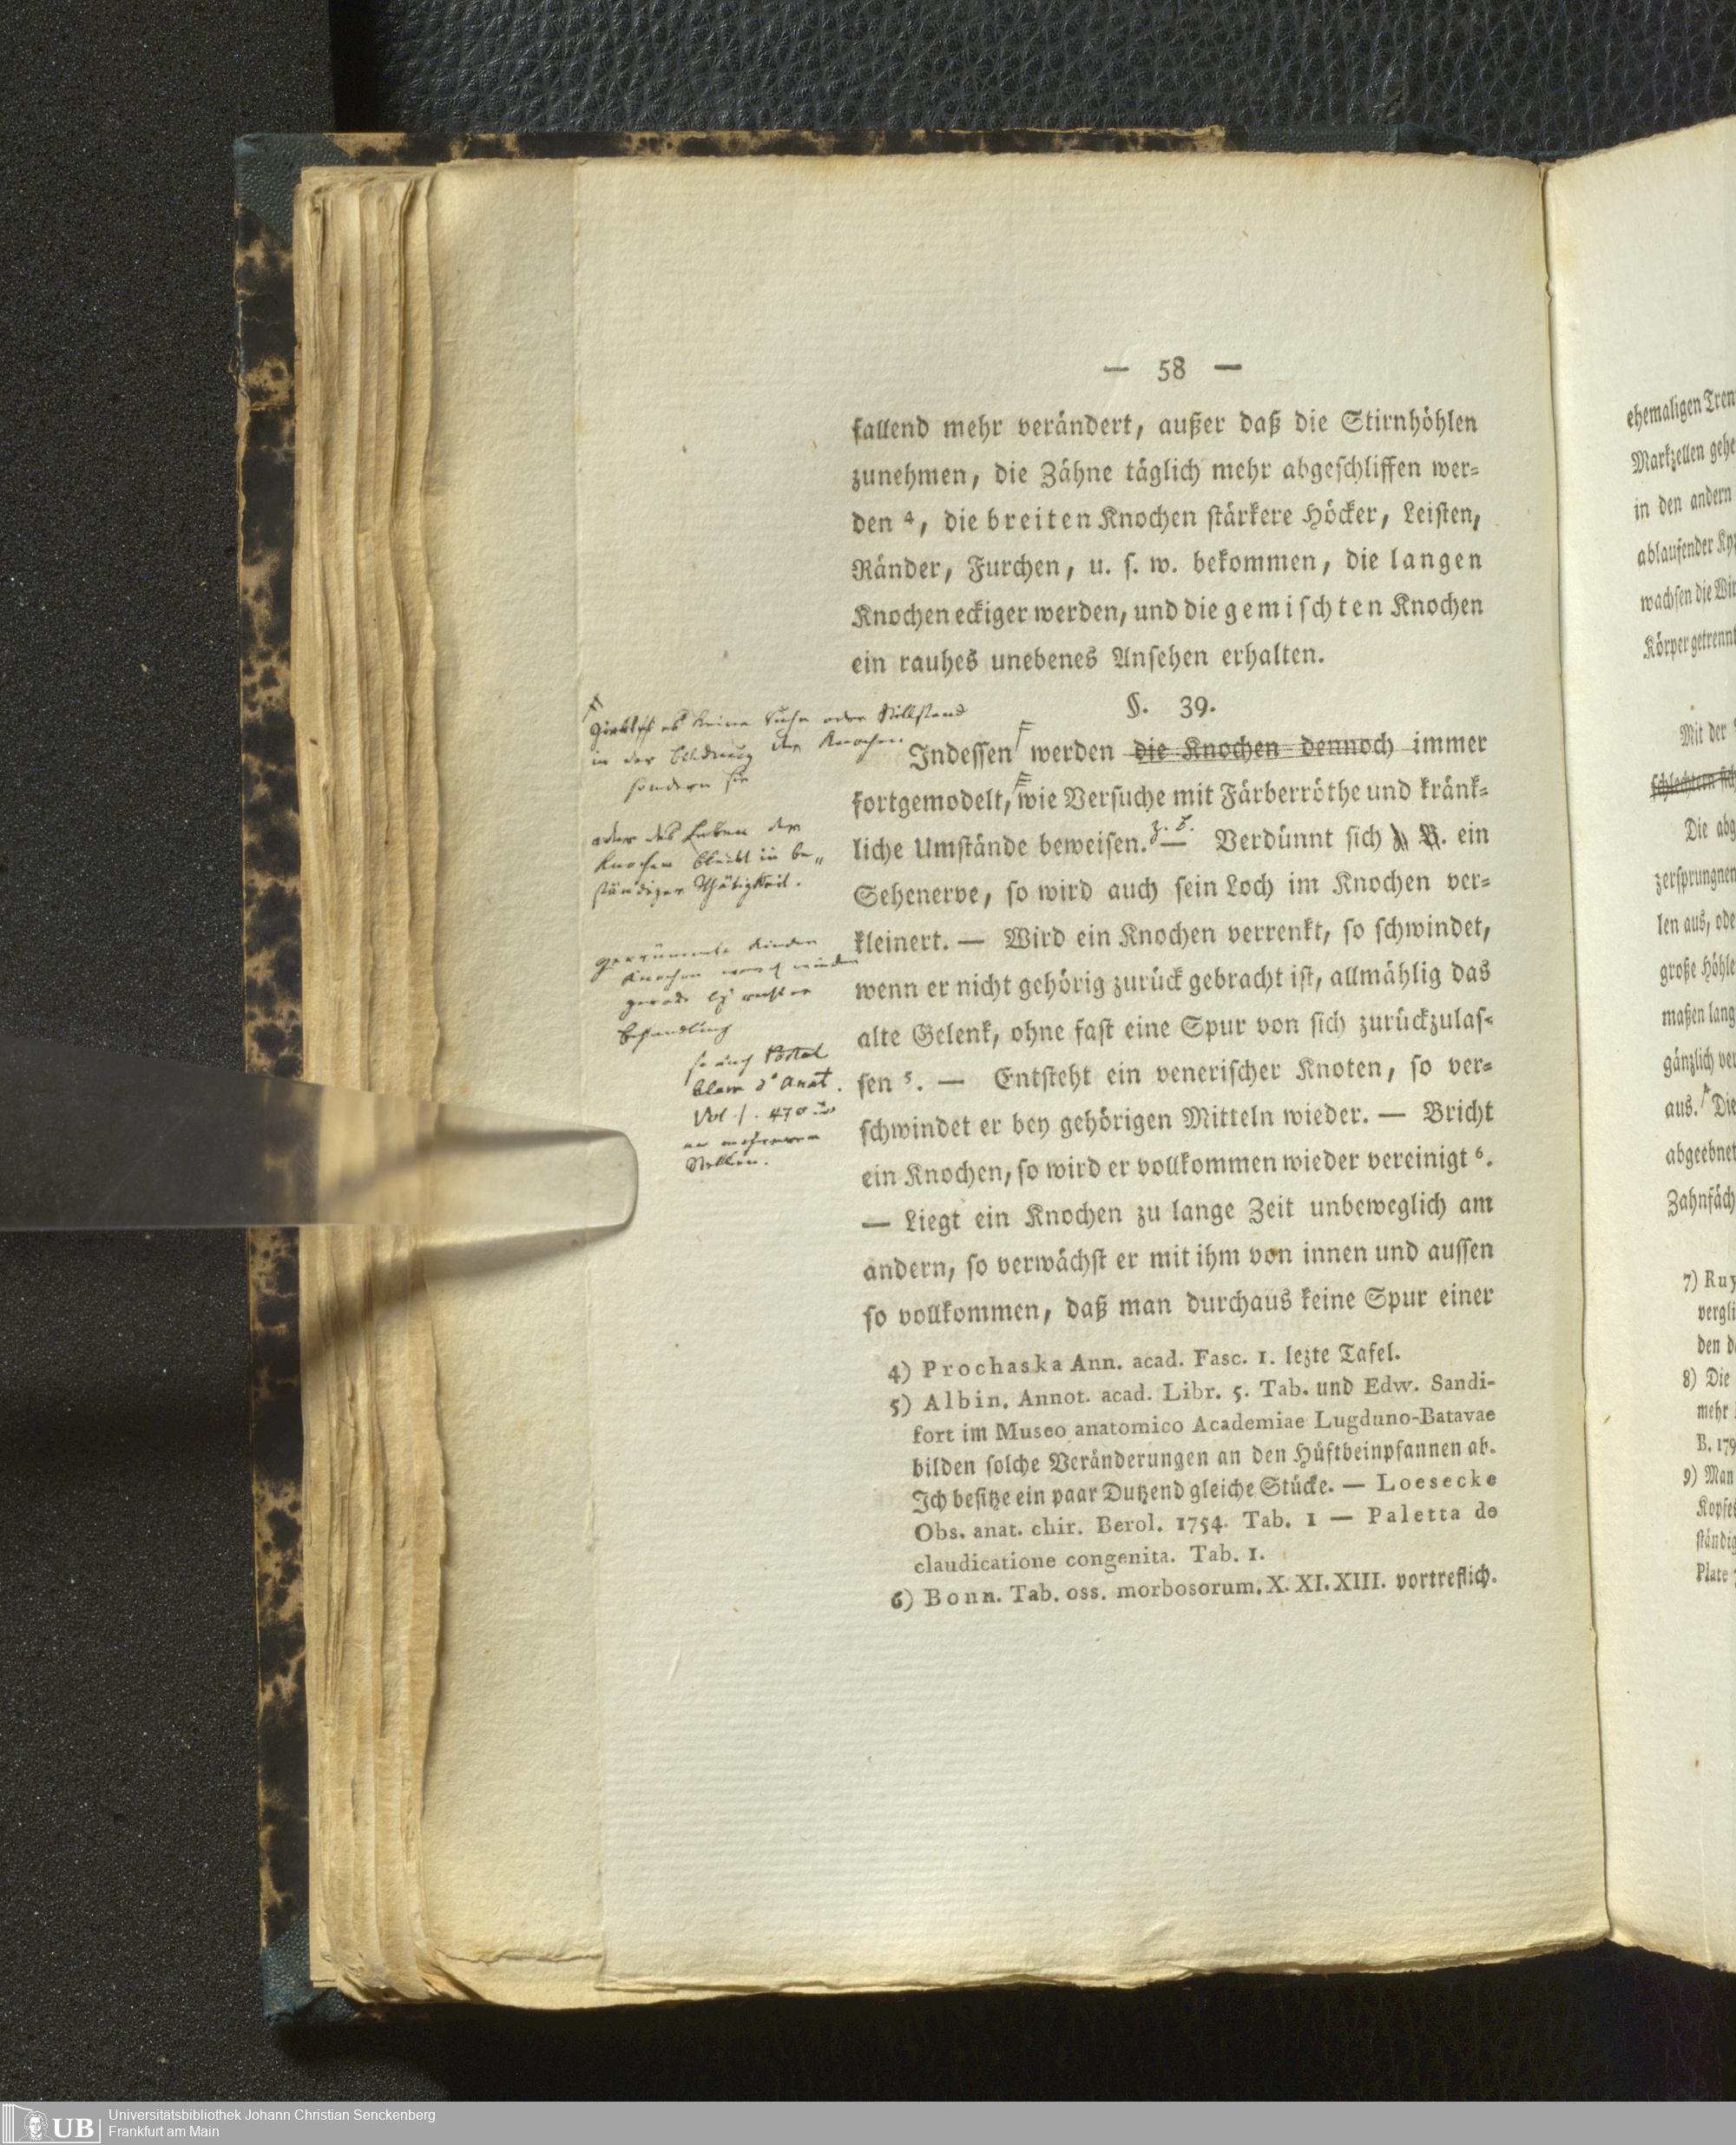 — 58 —
fallend mehr verändert, außer daß die Stirnhöhlen
zunehmen, die Zähne täglich mehr abgeschliffen wer-
den ⁴, die breiten Knochen stärkere Höcker, Leisten,
Ränder, Furchen, u. s. w. bekommen, die langen
Knochen eckiger werden, und die gemischten Knochen
ein rauhes unebenes Ansehen erhalten.
§. 39.
Indessen werden die Knochen dennoch immer
fortgemodelt, wie Versuche mit Färberröthe und kränk-
liche Umstände beweisen. z. B. — Verdünnt sich z. B. ein
Sehenerve, so wird auch sein Loch im Knochen ver-
kleinert. — Wird ein Knochen verrenkt, so schwindet,
wenn er nicht gehörig zurück gebracht ist, allmählig das
alte Gelenk, ohne fast eine Spur von sich zurückzulas-
sen ⁵. — Entsteht ein venerischer Knoten, so ver-
schwindet er bey gehörigen Mitteln wieder. — Bricht
ein Knochen, so wird er vollkommen wieder vereinigt ⁶.
— Liegt ein Knochen zu lange Zeit unbeweglich am
andern, so verwächst er mit ihm von innen und aussen
so vollkommen, daß man durchaus keine Spur einer
4) Prochaska Ann. acad. Fasc. 1. lezte Tafel.
5) Albin. Annot. acad. Libr. 5. Tab. und Edw. Sandi-
fort im Museo anatomico Academiae Lugduno-Batavae
bilden solche Veränderungen an den Hüftbeinpfannen ab.
Ich besitze ein paar Dutzend gleiche Stücke. — Loesecke
Obs. anat. chir. Berol. 1754. Tab. 1 — Paletta de
claudicatione congenita. Tab. 1.
6) Bonn. Tab. oss. morbosorum. X. XI. XIII. vortreflich.
es keine Ruhe oder Stillstand
in der Bildung der Knochen
sondern sie
oder das Leben der
Knochen bleibt in be-
ständiger Thätigkeit.
Knochen
gerade
Behandlung
so auch Portal
d'Anat.
Vol. 1. 470
an mehreren
Stellen.
ehemaligen Tren
Markzellen gehe
in den andern
ablaufender
wachsen die
Körper getrennt
Mit der
schlechtern sich
Die abg
zersprungnen
len aus, ode
große Höhle
maßen lang
gänzlich ver
aus. Die
abgeebnet
Zahnfäch
7) Ruy
vergli
den d
8) Die
mehr
B. 179
9) Man
Kopfes
ständig
Plate
UB
Universitätsbibliothek Johann Christian Senckenberg
Frankfurt am Main